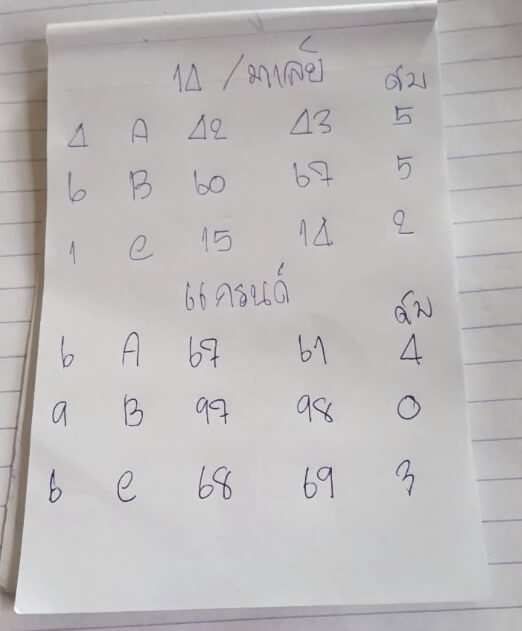 14 / มาเลย์ สับ
4 A 42 43 5
6 B 60 67 5
1 C 15 14 2
66 ครนด์ สับ
6 A 67 61 4
9 B 97 98 0
6 C 68 69 3